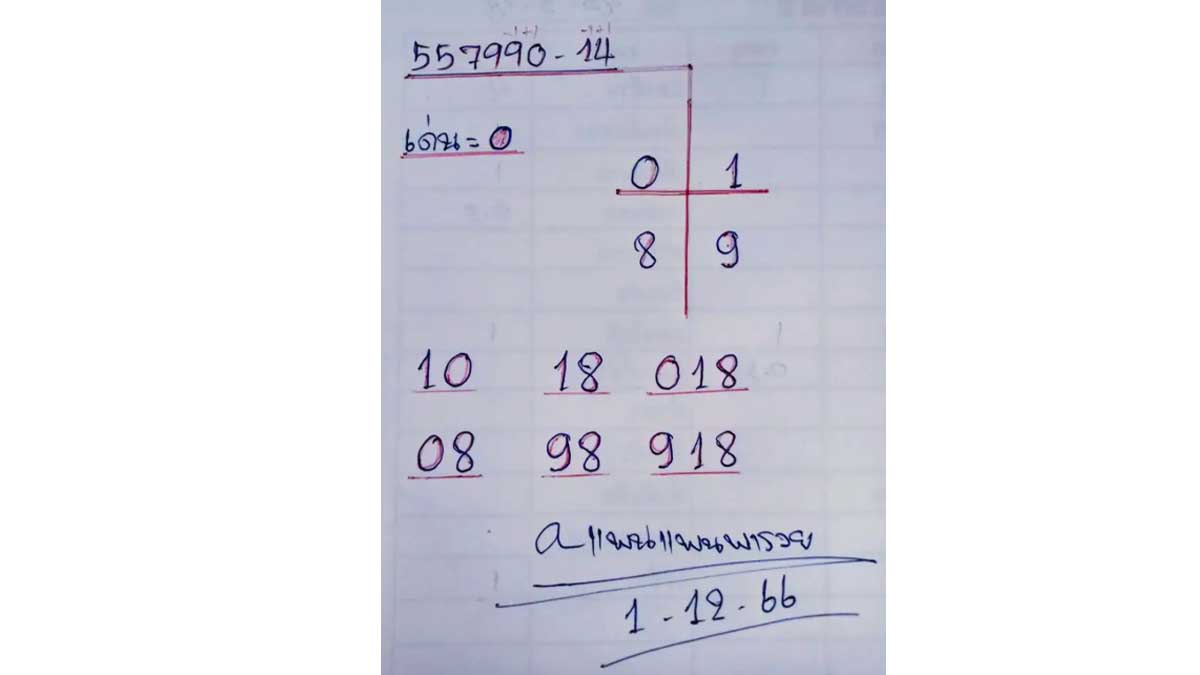 -1+1 -1+1
557990-14
เด่น=0
0 1
8 9
10 18 018
08 98 918
1-12-66